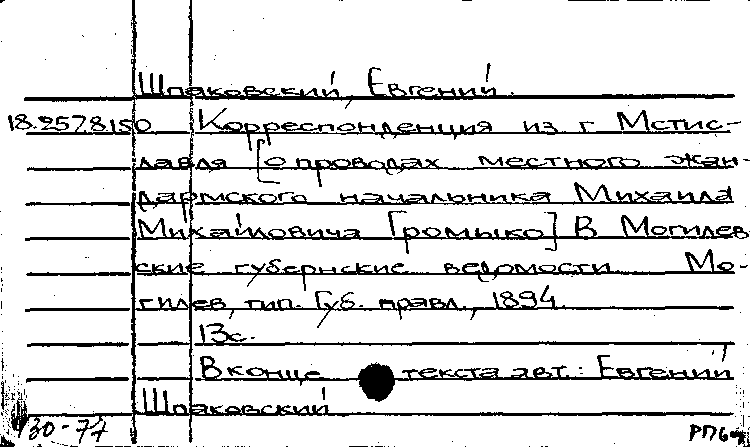 Шпаковский, Евгений.
18.257.8.150 Корреспонденция из г. Мстис-
лавля [о проводах местного жан-
дармского начальника Михаила
Михайловича Громыко] В Могилев
ские губернские ведомости Мо-
гилев, тип. Губ. правл., 1894.
13с.
В конце текста авт.: Евгений
Шпаковский
930-77